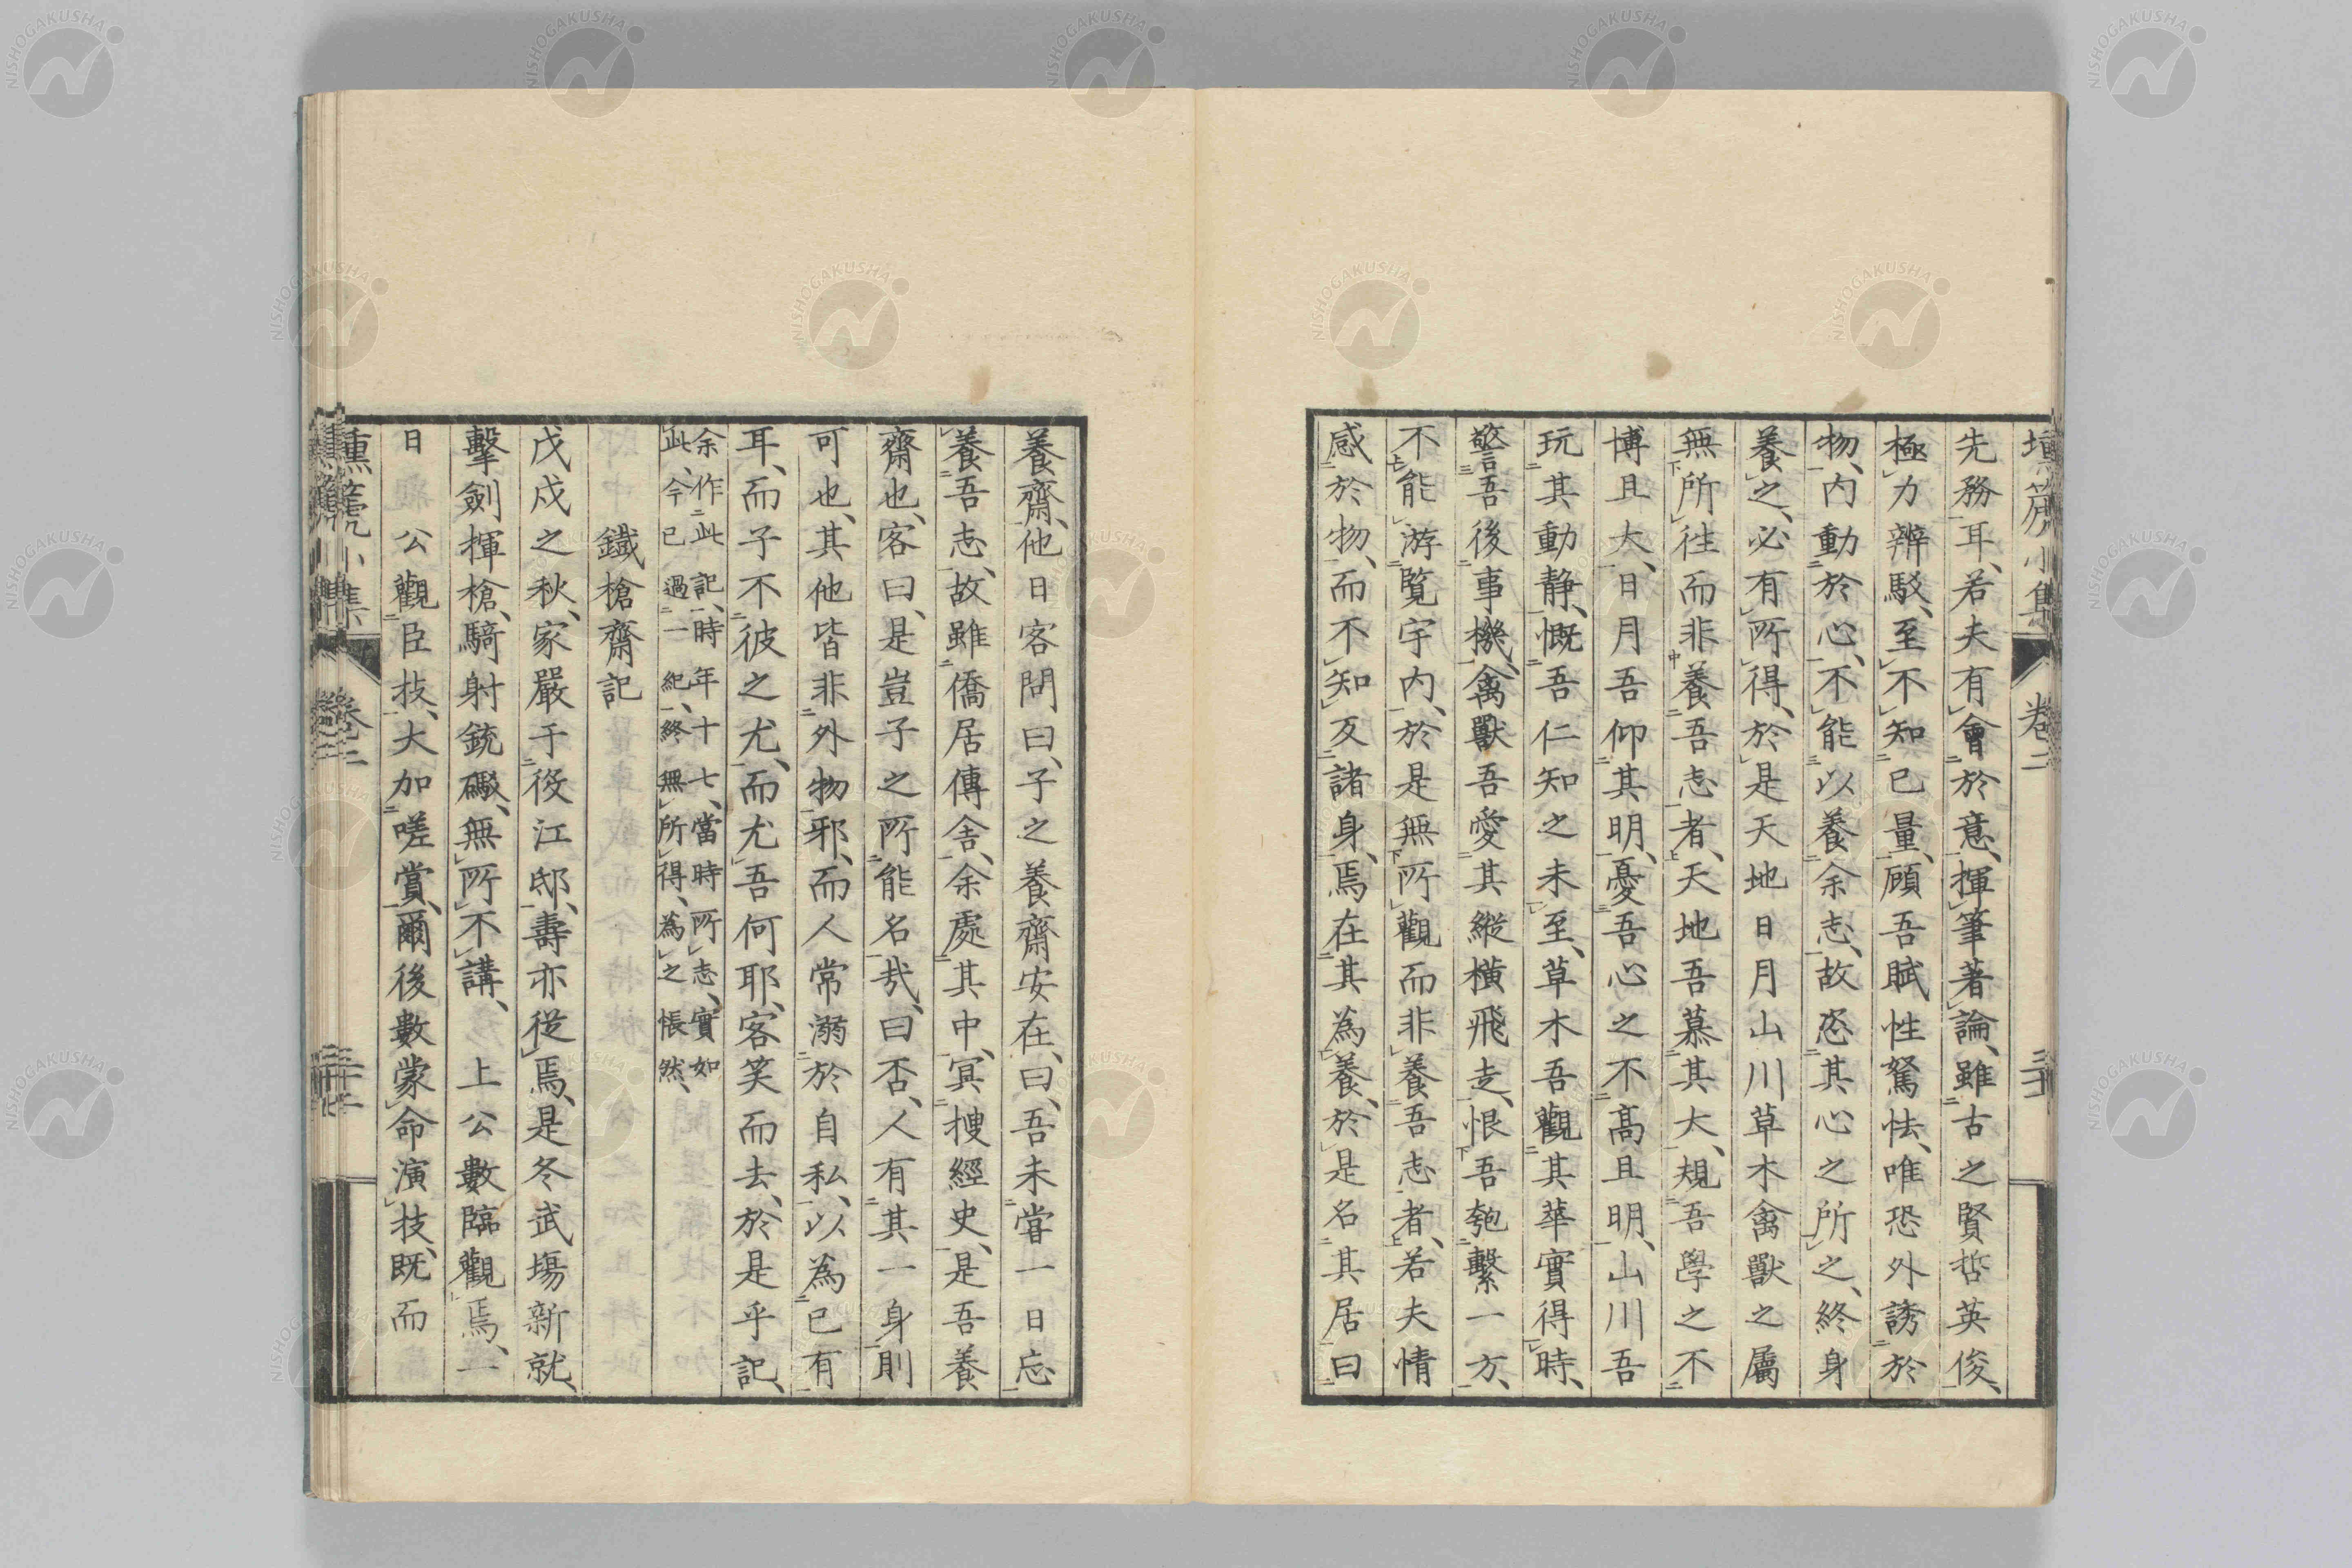 壎箎小集 卷二 三十
先務耳、若夫有會於意、揮筆著論、雖古之賢哲英俊、
極力辨駁、至不知已量、顧吾賦性駑怯、唯恐外誘於
物、內動於心、不能以養余志、故恣其心之所之、終身
養之、必有所得、於是天地日月山川草木禽獸之屬
無所往而非養吾志者、天地吾慕其大、規吾學之不
博且大、日月吾仰其明、憂吾心之不高且明、山川吾
玩其動靜、慨吾仁知之未至、草木吾觀其華實得時、
警吾後事機、禽獸吾愛其縱橫飛走、恨吾匏繫一方、
不能游覽宇內、於是無所觀而非養吾志者、若夫情
感於物、而不知反諸身、焉在其為養、於是名其居曰
養齋、他日客問曰、子之養齋安在、曰、吾未嘗一日忘
養吾志、故雖僑居傳舍、余處其中、冥搜經史、是吾養
齋也、客曰、是豈子之所能名哉、曰否、人有其一身則
可也、其他皆非外物邪、而人常溺於自私、以為已有
耳、而子不彼之尤、而尤吾何耶、客笑而去、於是乎記、
余作此記、時年十七、當時所志、實如
此、今已過一紀、終無所得、為之悵然、
鐵槍齋記
戊戌之秋、家嚴于役江邸、壽亦從焉、是冬武場新就、
擊劍揮槍、騎射銃礮、無所不講、上公數臨觀焉、一
日 公觀臣技、大加嗟賞、爾後數蒙命演技、既而
壎箎小集 卷二